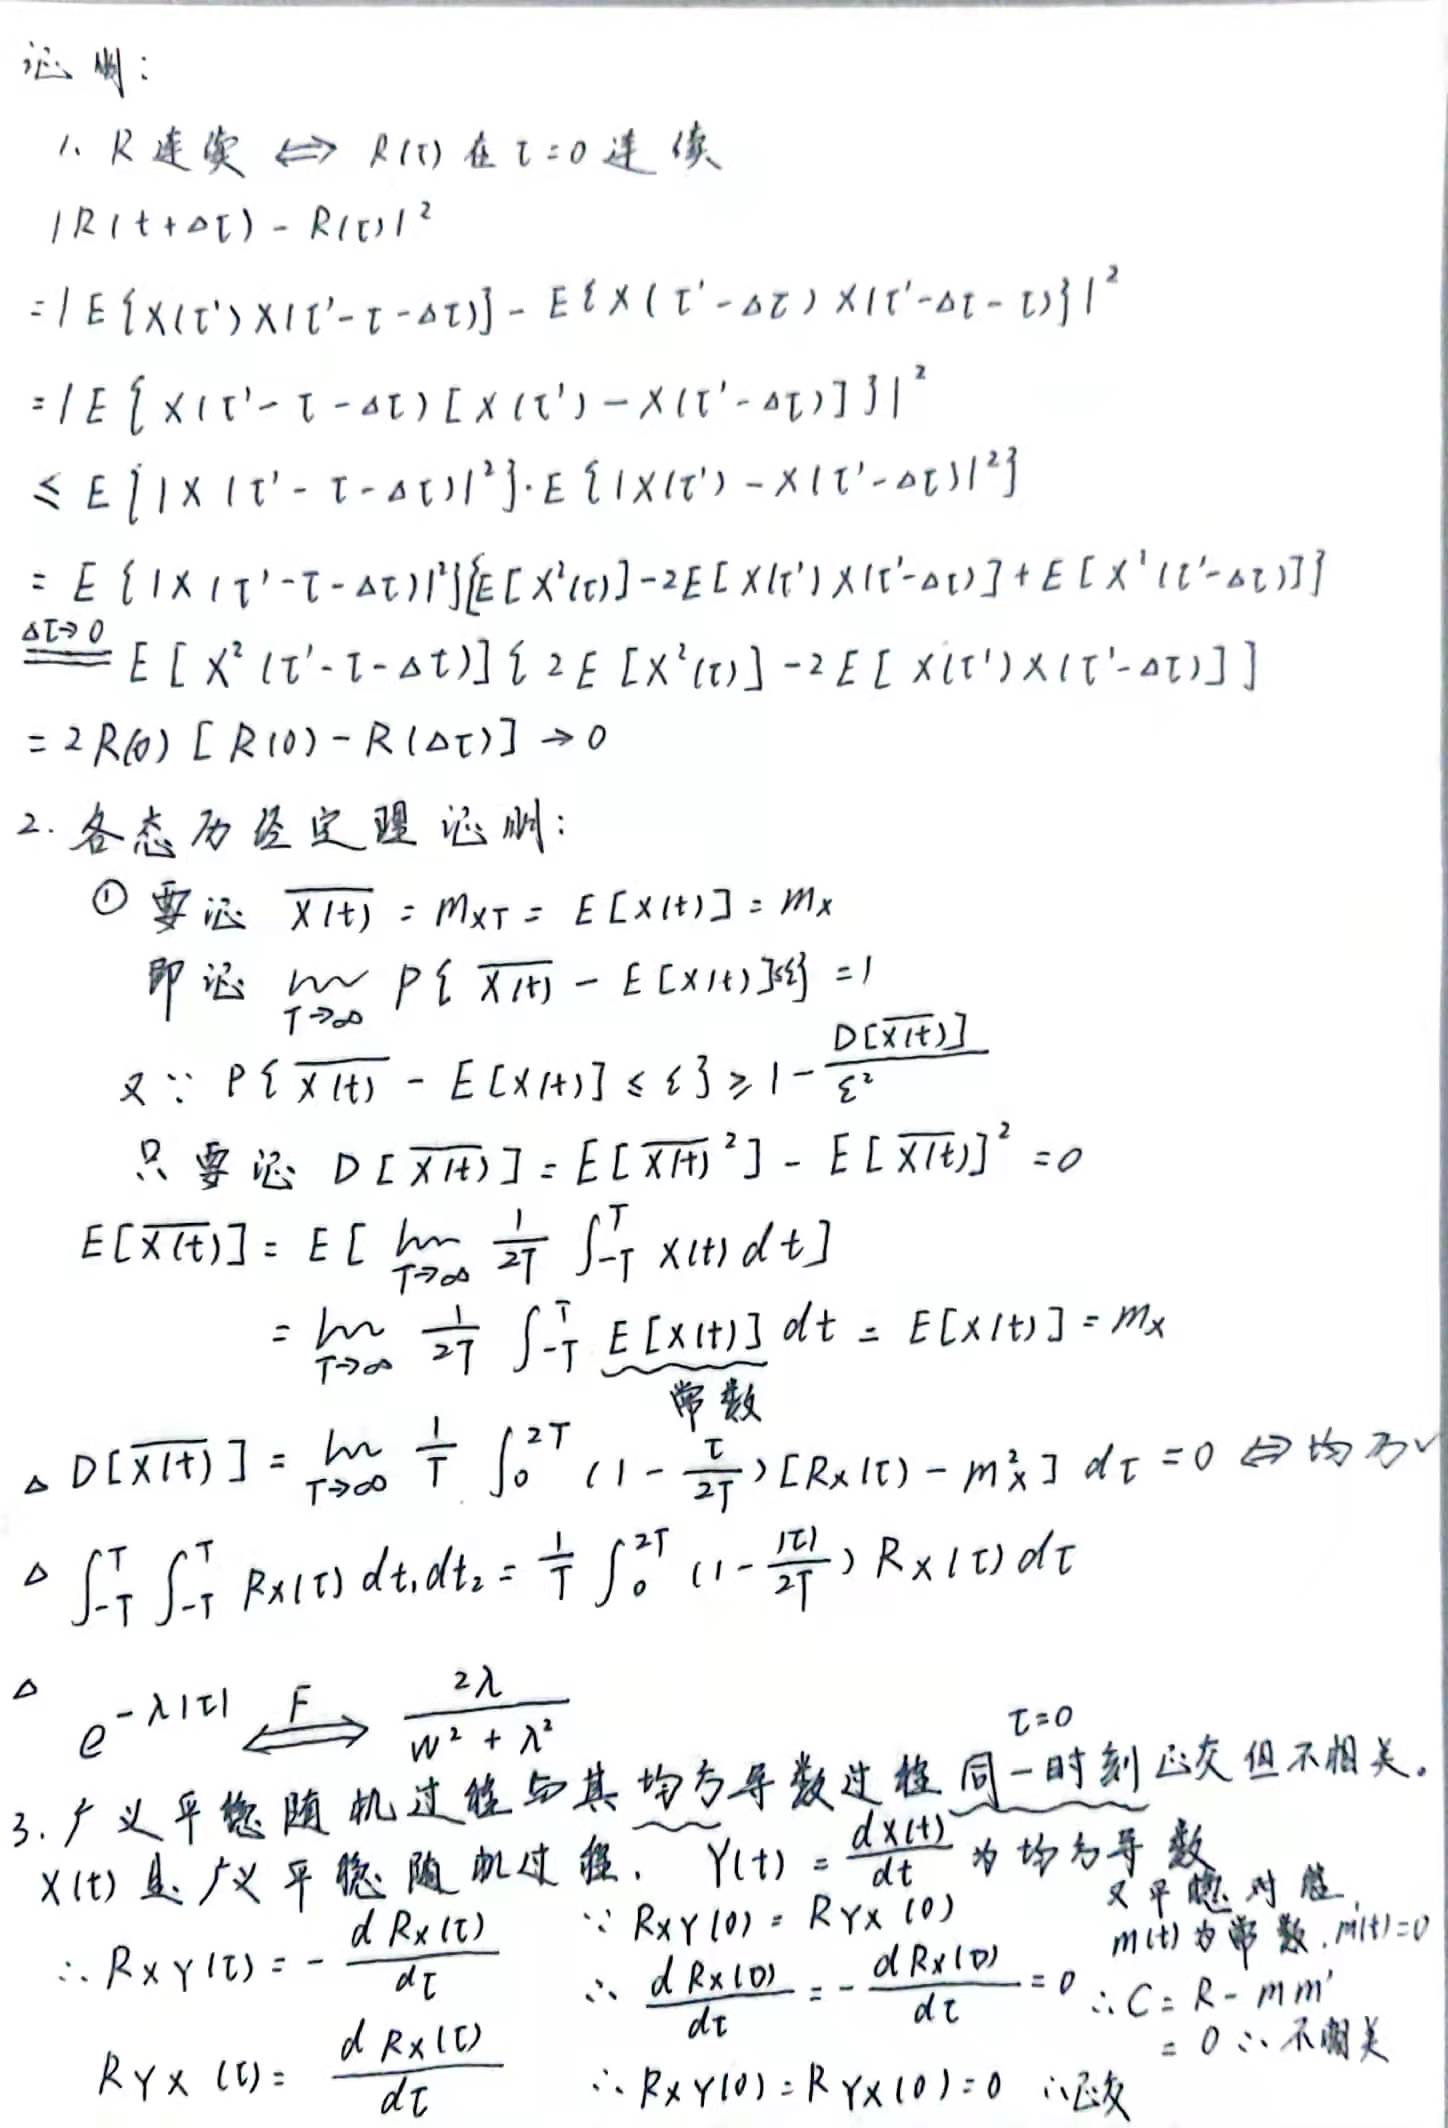 证明:
1. R 连续 ⟺ R(τ) 在 τ=0 连续
|R(t+Δτ) - R(τ)|²
=|E{X(τ')X(τ'-τ-Δτ)] - E{X(τ'-Δτ)X(τ'-Δτ-τ)}|²
=|E{X(τ'-τ-Δτ)[X(τ')-X(τ'-Δτ)]}|²
≤ E{|X(τ'-τ-Δτ)|²}·E{|X(τ')-X(τ'-Δτ)|²}
= E{|X(τ'-τ-Δτ)|²}{E[X²(τ)]-2E[X(τ')X(τ'-Δτ)]+E[X²(τ'-Δτ)]}
Δτ→0 = E[X²(τ'-τ-Δt)]{2E[X²(τ)]-2E[X(τ')X(τ'-Δτ)]]
= 2R(0)[R(0)-R(Δτ)] → 0
2. 各态历经定理证明:
① 要证 \overline{X(t)} = m_{XT} = E[X(t)] = m_X
即证 lim_{T→∞} P{\overline{X(t)} - E[X(t)]≤ε} = 1
又∵ P{\overline{X(t)} - E[X(t)] ≤ ε} ≥ 1 - D[\overline{X(t)}]/ε²
只要证 D[\overline{X(t)}] = E[\overline{X(t)}²] - E[\overline{X(t)}]² = 0
E[\overline{X(t)}] = E[lim_{T→∞} 1/2T ∫_{-T}^{T} X(t)dt]
= lim_{T→∞} 1/2T ∫_{-T}^{T} E[X(t)] dt = E[X(t)] = m_X
常数
△ D[\overline{X(t)}] = lim_{T→∞} 1/T ∫_0^{2T} (1 - τ/2T)[R_X(τ) - m_X²] dτ = 0 ⟺ 均历✓
△ ∫_{-T}^{T} ∫_{-T}^{T} R_X(τ)dt₁dt₂ = 1/T ∫_0^{2T} (1 - |τ|/2T) R_X(τ)dτ
△ e^{-λ|τ|} ⟺F 2λ/(w²+λ²)
τ=0
3. 广义平稳随机过程与其均方导数过程同一时刻正交但不相关。
X(t) 是广义平稳随机过程. Y(t) = dX(t)/dt 为均方导数
又平稳对应,
∴ R_{XY}(τ) = - dR_X(τ)/dτ ∵ R_{XY}(0) = R_{YX}(0) m(t)为常数. m'(t)=0
∴ dR_X(0)/dτ = - dR_X(0)/dτ = 0 ∴ C = R - mm'
= 0 ∴ 不相关
R_{YX}(τ) = dR_X(τ)/dτ ∴ R_{XY}(0) = R_{YX}(0) = 0 ∴正交